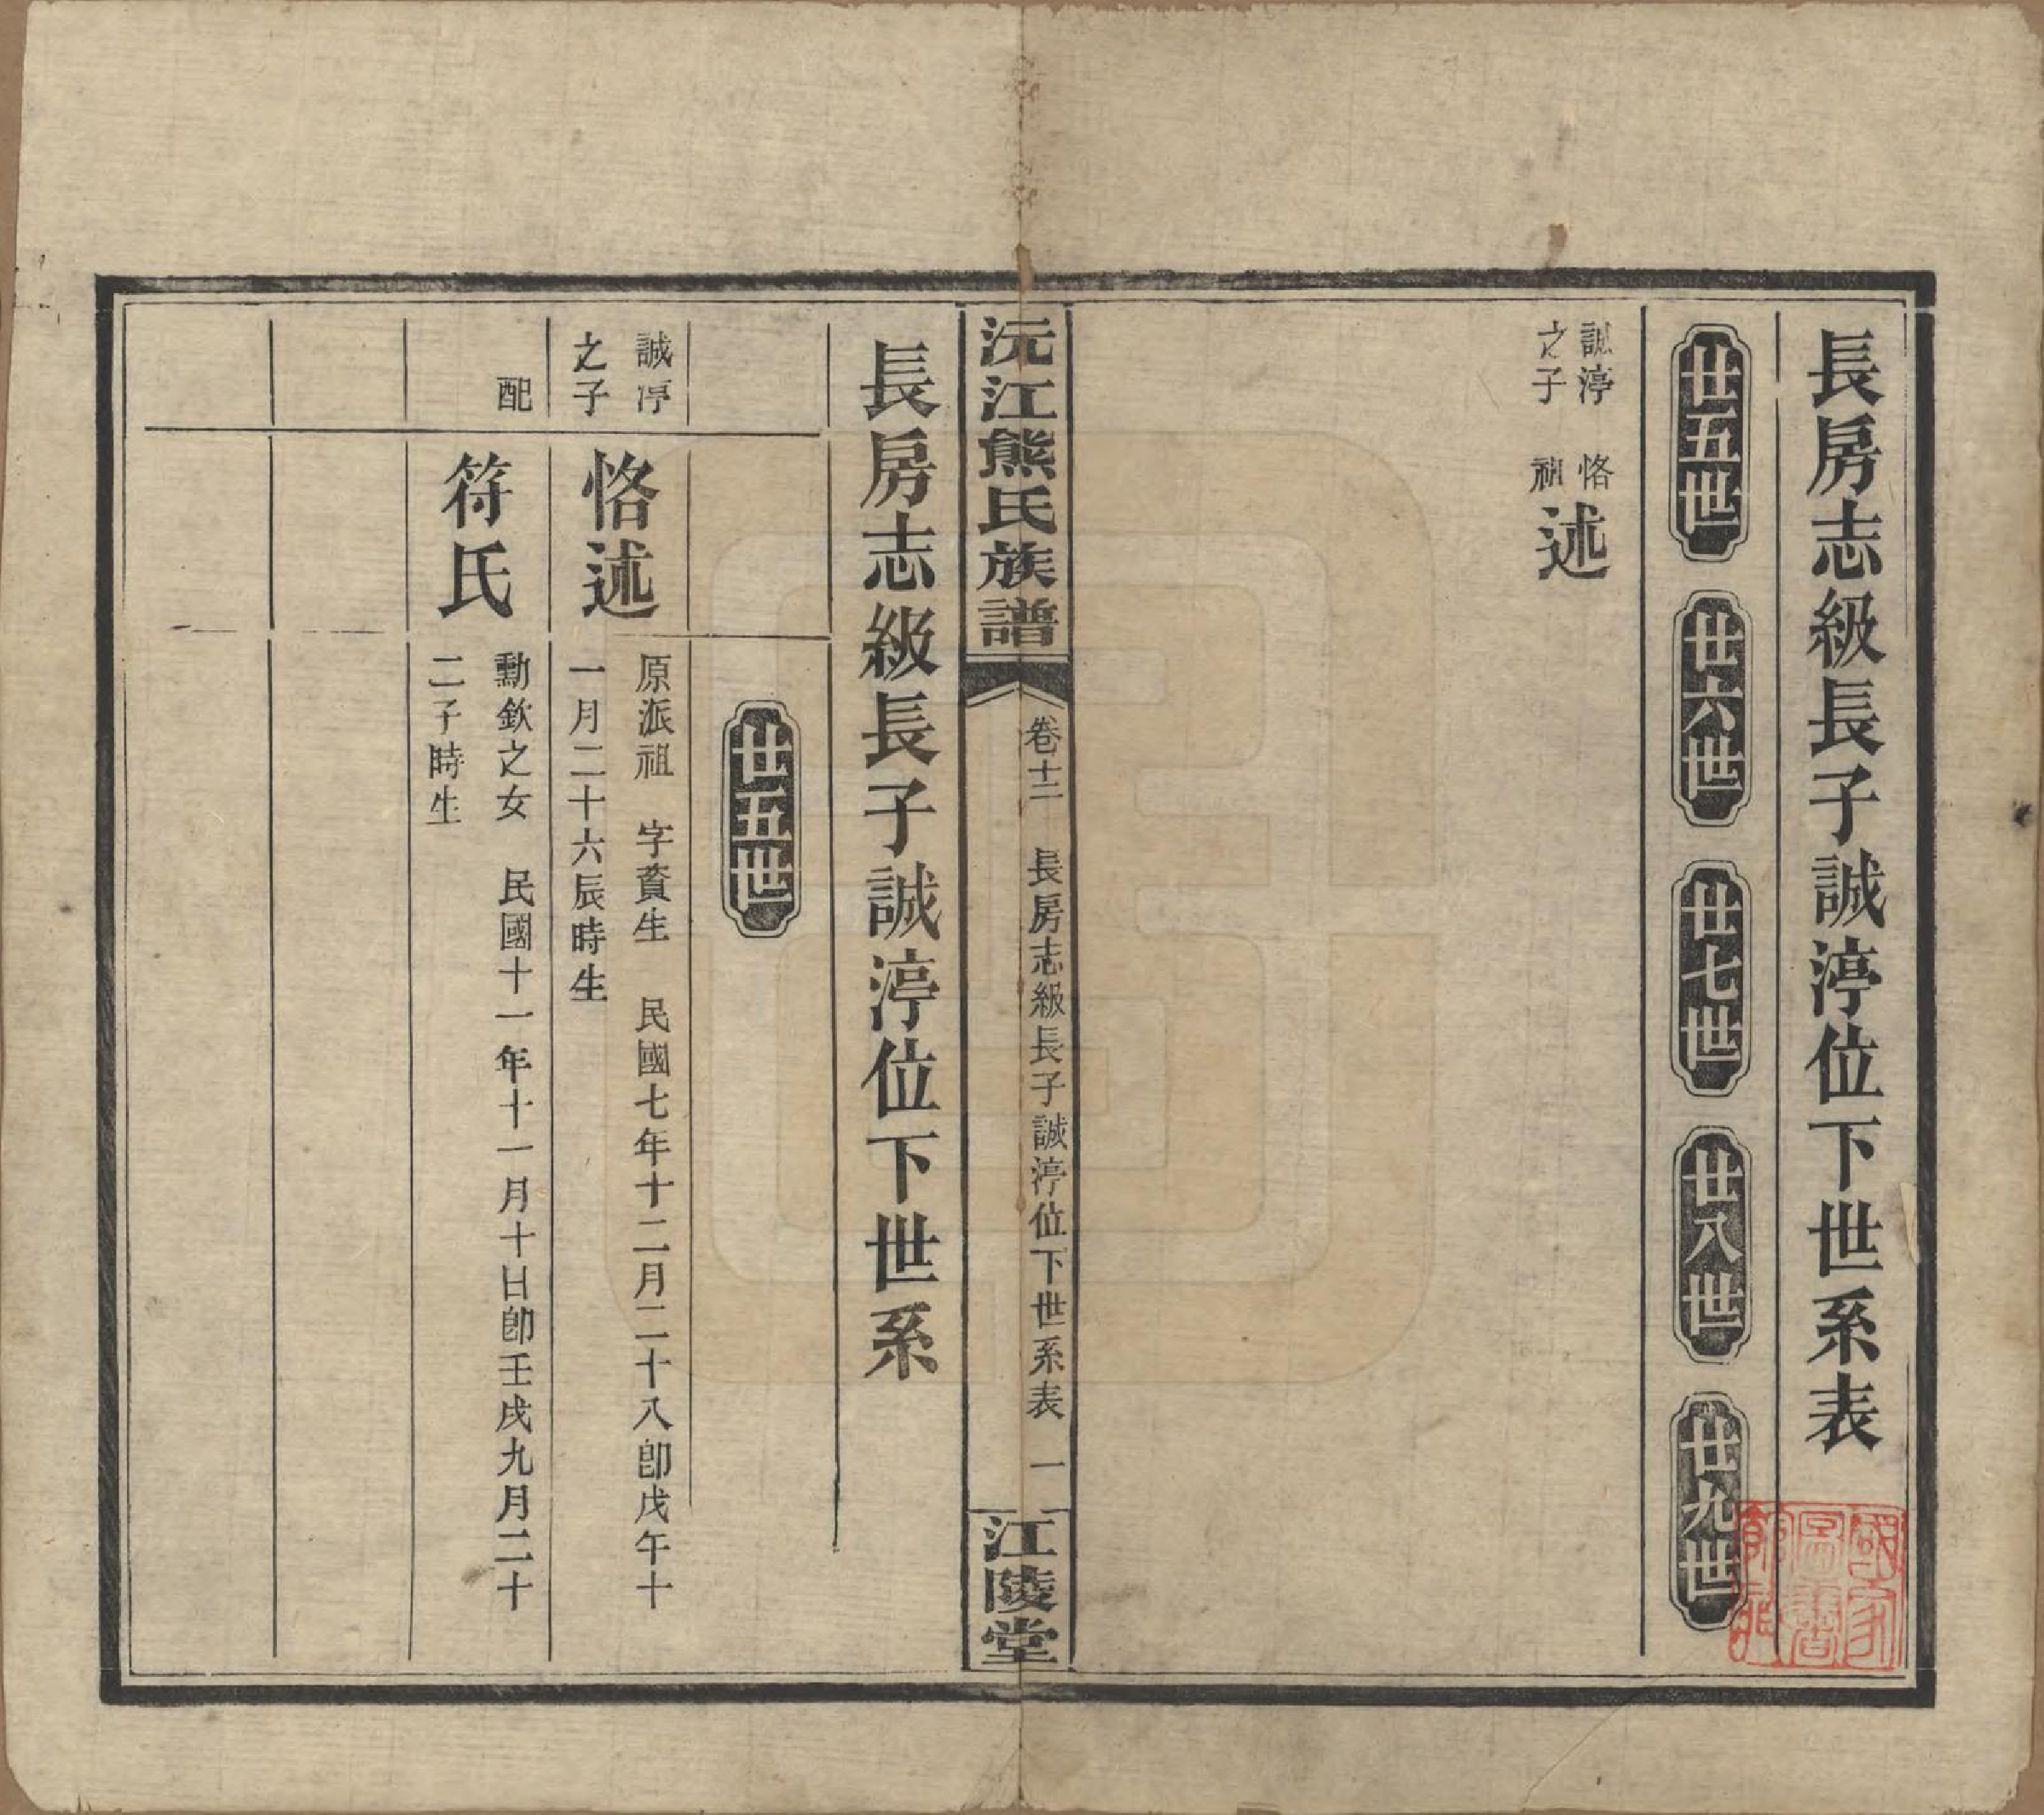 長房志級長子誠渟位下世系表
廿五世
廿六世
廿七世
廿八世
廿九世
誠渟
之子
恪
祖
述
沅江熊氏族譜
卷十二
長房志級長子誠渟位下世系表
一
江陵堂
長房志級長子誠渟位下世系
廿五世
誠渟
之子
恪述
原派祖 字賚生 民國七年十二月二十八卽戊午十
一月二十六辰時生
配
符氏
勳欽之女 民國十一年十一月十日卽壬戌九月二十
二子時生
國家
圖書
館藏